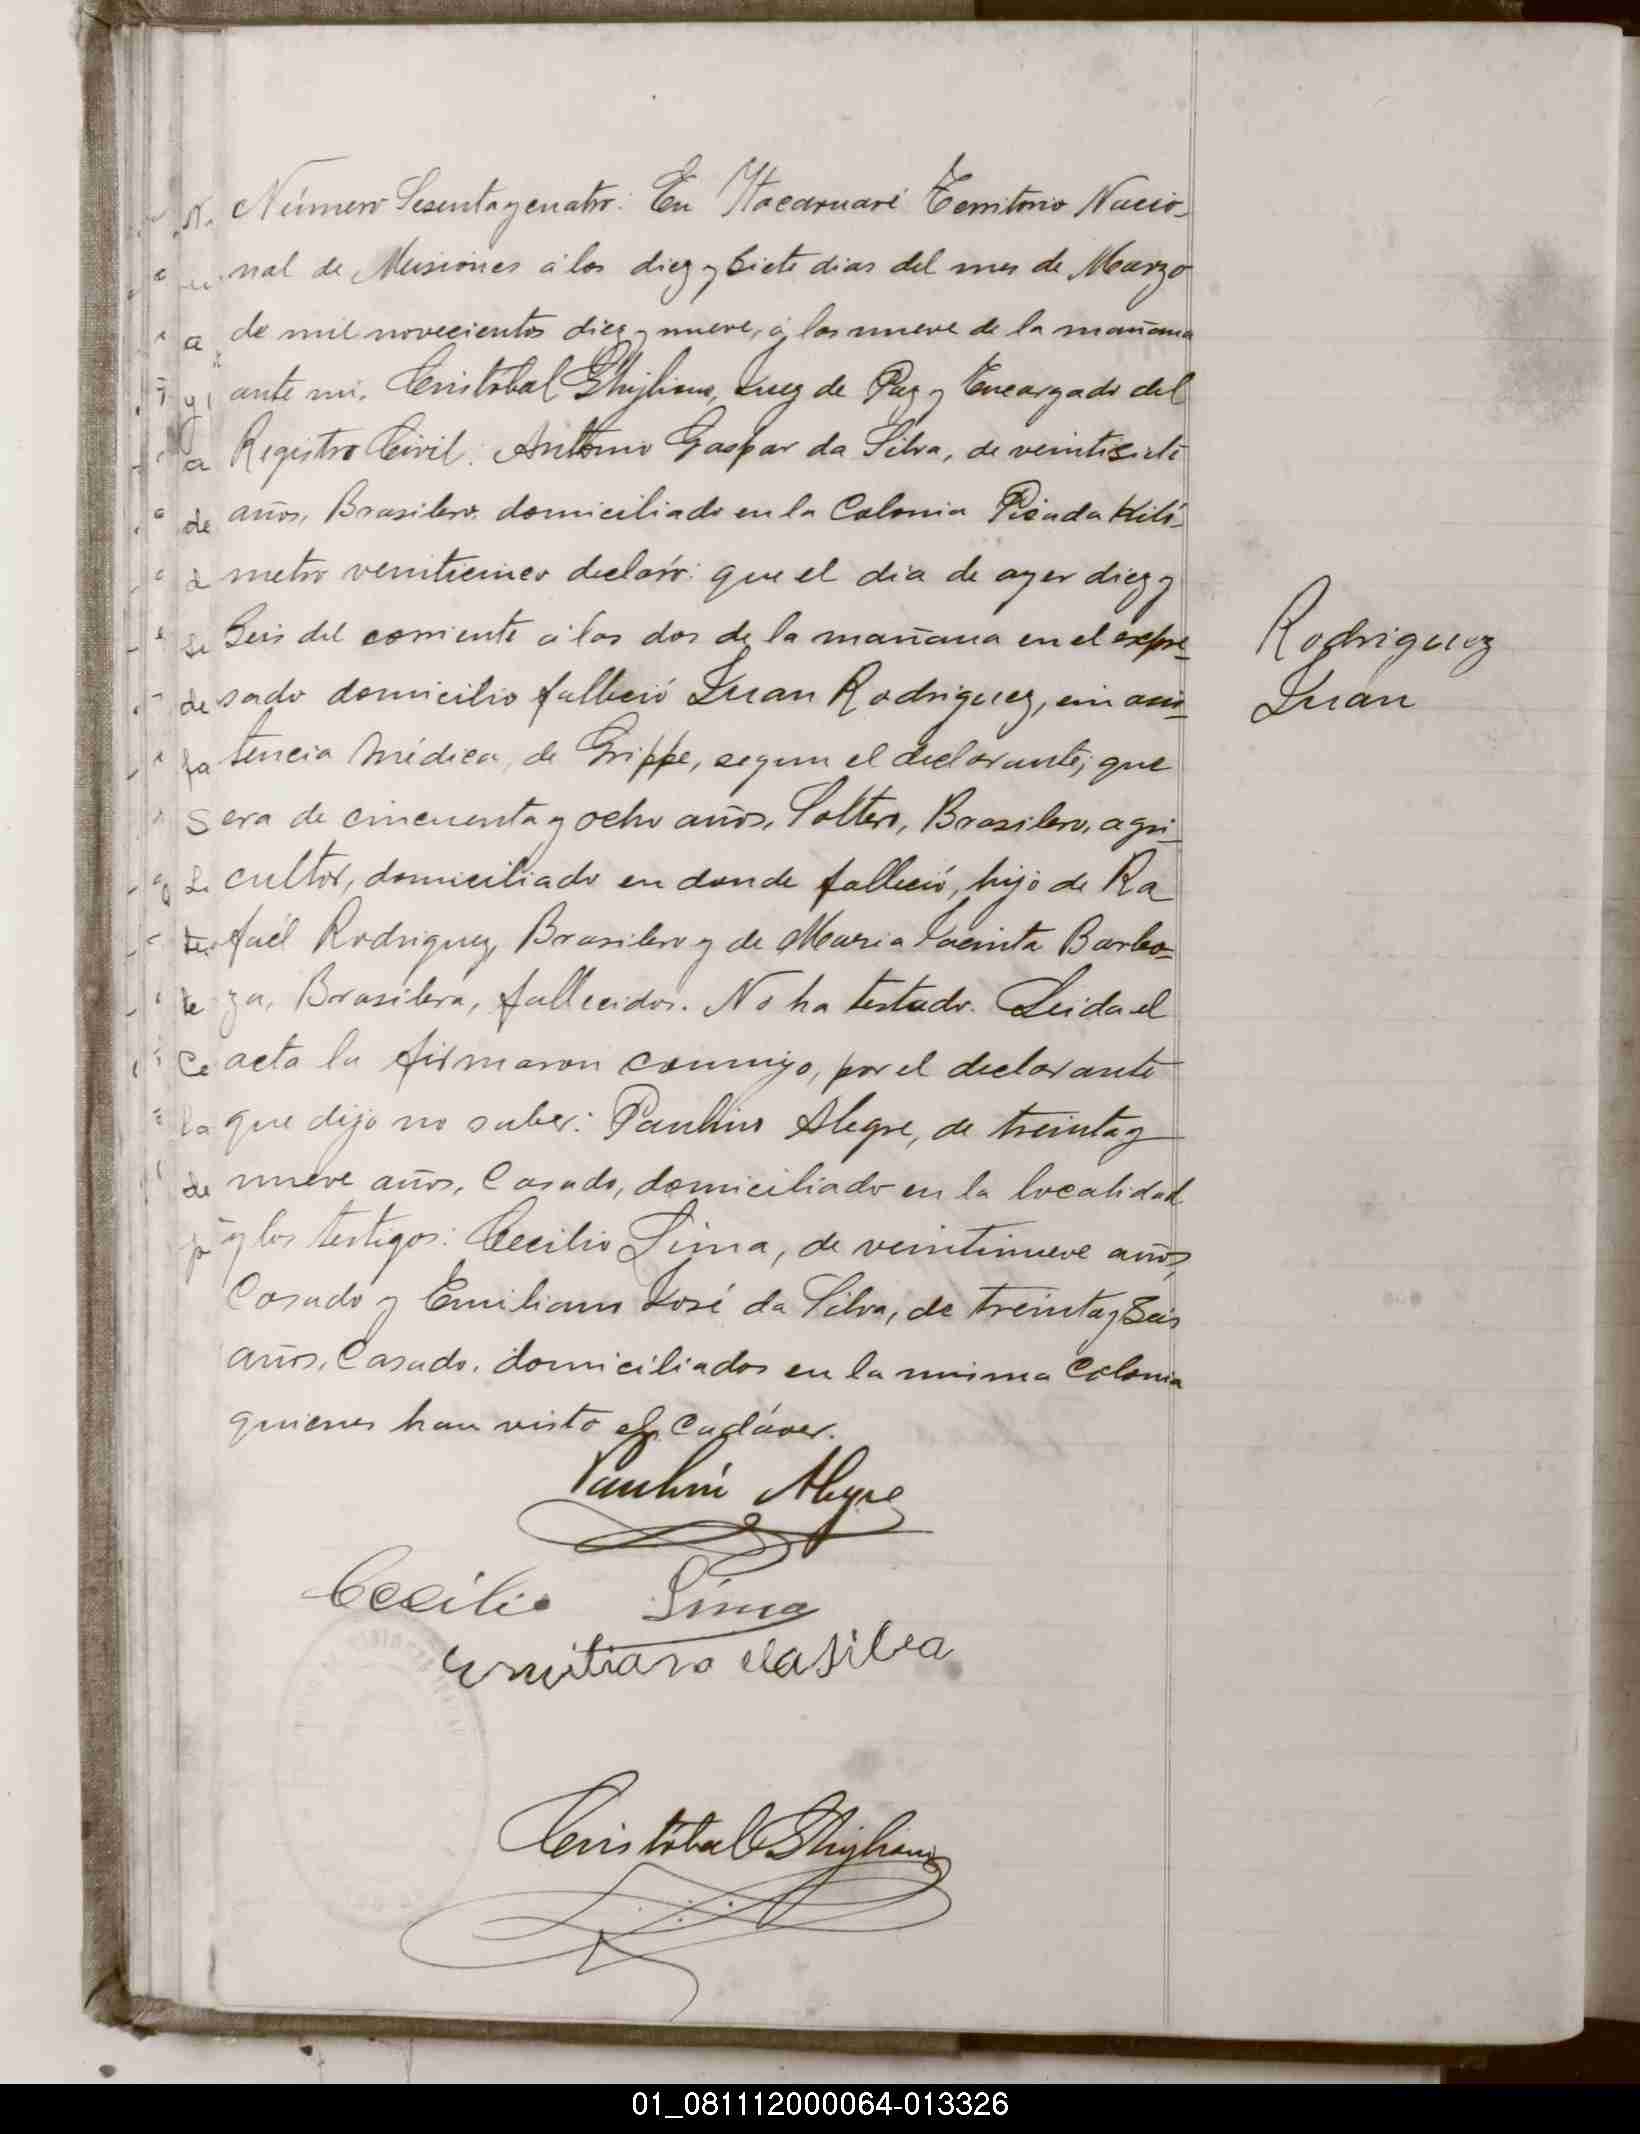 Número Sesenta y cuatro: En Itacaruaré Territorio Nacio-
nal de Misiones á los diez y siete dias del mes de Marzo
de mil novecientos diez y nueve, á las nueve de la mañana
ante mi, Cristóbal Ghigliano, Juez de Paz y Encargado del
Registro Civil: Antonio Gaspar da Silva, de veintisiete
años, Brasilero, domiciliado en la Colonia Picada Kiló-
metro veinticinco declaró: que el dia de ayer diez y
Seis del corriente á las dos de la mañana en el expre-
sado domicilio falleció Juan Rodriguez, sin asis-
tencia Médica, de Grippe, segun el declarante; que
era de cincuenta y ocho años, Soltero, Brasilero, agri-
cultor, domiciliado en donde falleció, hijo de Ra
faél Rodriguez, Brasilero y de Maria Jacinta Barbo-
za, Brasilera, fallecidos. No ha testado. Leida el
acta la firmaron conmigo, por el declarante
que dijo no saber: Paulino Alegre, de treinta y
nueve años, Casado, domiciliado en la localidad
y los testigos: Cecilio Lima, de veintinueve años,
Casado y Emiliano José da Silva, de treinta y Seis
años, Casado, domiciliados en la misma Colonia
quienes han visto el cadáver.
Rodriguez
Juan
Paulino Alegre
Cecilio Lima
Emiliano da Silva
Cristóbal Ghigliano
01_081112000064-013326